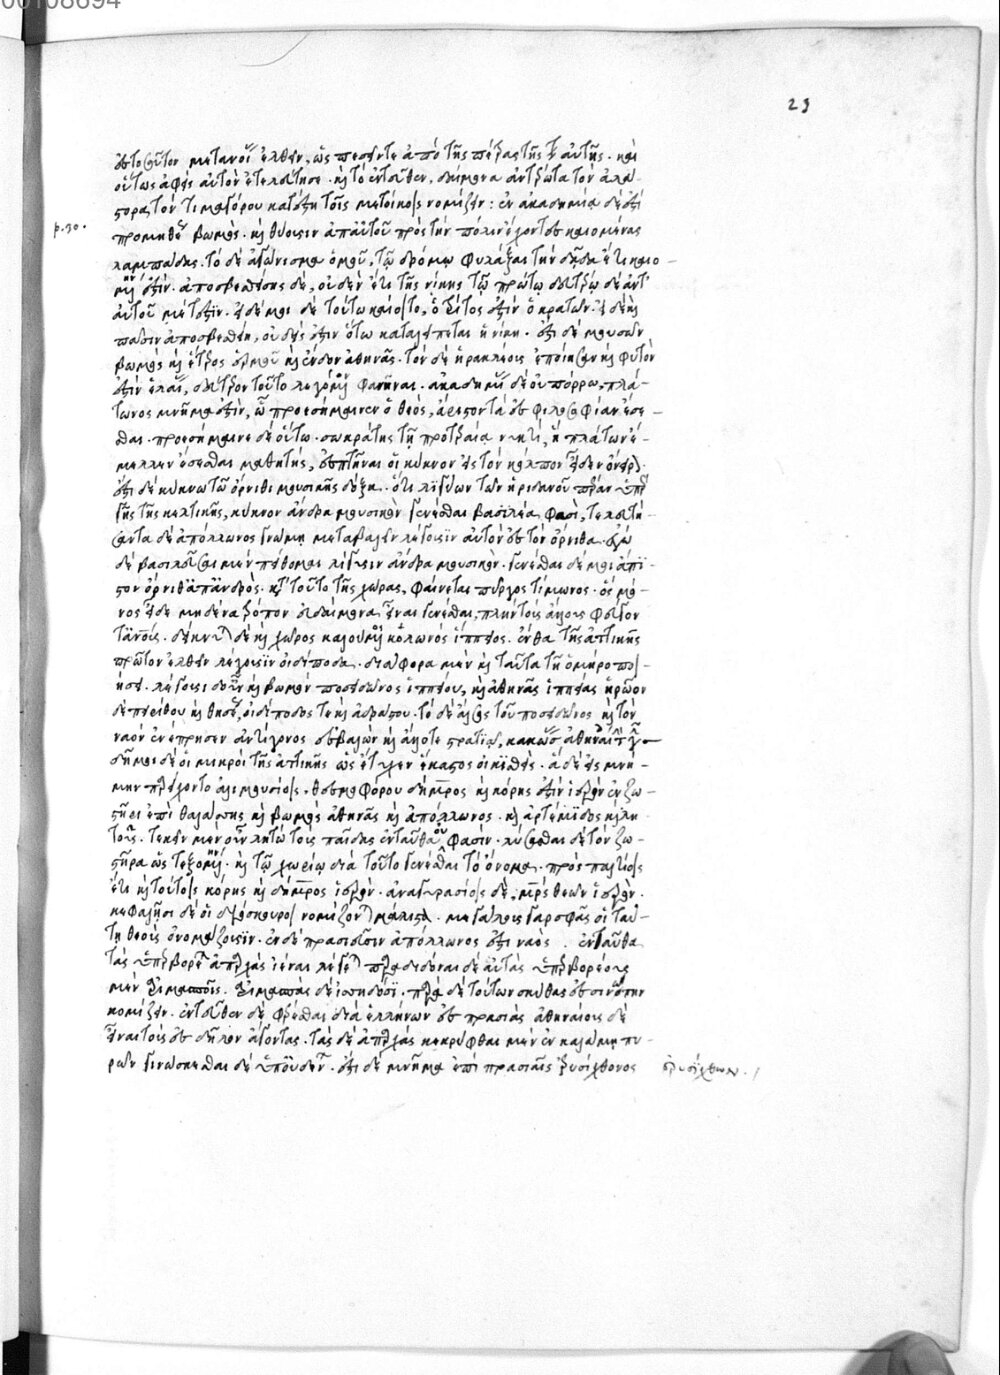 00108694
23
ἐς τοσοῦτον μετανοίας ἐλθεῖν, ὡς πεσεῖν τε ἀπὸ τῆς πέτρας τῆς αὐτῆς. καὶ
οὕτως ἀφεὶς αὑτὸν ἐτελεύτησε. καὶ τὸ ἐντεῦθεν, δαίμονα ἀντέρωτα τὸν ἀλά-
στορα τὸν τιμαγόρου κατέστη τοῖς μετοίκοις νομίζειν : ἐν ἀκαδημία δέ ἐστι
p.30.
προμηθέως βωμὸς. καὶ θέουσιν ἀπ' αὐτοῦ πρὸς τὴν πόλιν ἔχοντες καιομένας
λαμπάδας. τὸ δὲ ἀγώνισμα ὁμοῦ, τῷ δρόμῳ φυλάξαι τὴν δᾷδα ἔτι καιο-
μένην ἐστίν. ἀποσβεσθείσης δὲ, οὐδὲν ἔτι τῆς νίκης τῷ πρώτῳ δευτέρῳ δὲ ἀντ'
αὐτοῦ μέτεστιν. εἰ δὲ μηδὲ τούτω καίοιτο, ὁ τρίτος ἐστὶν ὁ κρατῶν. εἰ δὲ καὶ
πᾶσιν ἀποσβεσθείη, οὐδείς ἐστιν ὅτω καταλείπεται ἡ νίκη. ἔστι δὲ μουσῶν
βωμὸς καὶ ἕτερος ἑρμοῦ καὶ ἔνδον ἀθηνᾶς. τὸν δὲ ἡρακλέους ἐποίησαν καὶ φυτόν
ἐστιν ἐλαίας, δεύτερον τοῦτο λεγόμενον φανῆναι. ἀκαδημίας δὲ οὐ πόρρω, πλά-
τωνος μνῆμα ἐστὶν, ὧ προεσήμαινεν ὁ θεὸς, ἄριστον τὰ ἐς φιλοσοφίαν ἔσε-
σθαι. προεσήμαινε δὲ οὕτω. σωκράτης τῇ προτεραία νυκτὶ, ἢ πλάτων ἔ-
μελλεν ἔσεσθαι μαθητὴς, ἐσπτῆναι οἱ κύκνον ἐς τὸν κόλπον εἶδεν ὄνειρον.
ἔστι δὲ κύκνω τῷ ὄρνιθι μουσικῆς δόξα. ὅτι λιγύων τῶν ἠριδανοῦ πέραν ὑπὲρ
γῆς τῆς κελτικῆς, κύκνον ἄνδρα μουσικὸν γενέσθαι βασιλέα φασὶ, τελευτή-
σαντα δὲ ἀπόλλωνος γνώμη μεταβαλεῖν λέγουσιν αὐτὸν ἐς τὸν ὄρνιθα. ἐγὼ
δὲ βασιλεῦσαι μὲν πείθομαι λίγυσιν ἄνδρα μουσικὸν. γενέσθαι δέ μοι ἄπι-
στον ὄρνιθα ἀπ' ἀνδρός. κατὰ τοῦτο τῆς χώρας, φαίνεται πύργος τίμωνος. ὃς μό-
νος εἶδε μηδένα τρόπον εὐδαίμονα εἶναι γενέσθαι, πλὴν τοὺς ἄλλους φεύγον-
τα ἀνθρώπους. δείκνυται δὲ καὶ χῶρος καλούμενος κόλωνος ἵππιος. ἔνθα τῆς ἀττικῆς
πρῶτον ἐλθεῖν λέγουσιν οἰδίποδα. διάφορα μὲν καὶ ταῦτα τῇ ὁμήρο ποι-
ήσει. λέγουσι δ' οὖν καὶ βωμὸν ποσειδῶνος ἱππίου, καὶ ἀθηνᾶς ἱππίας ἡρῷον
δὲ πειρίθου καὶ θησέως, οἰδίποδος τε καὶ ἀδράστου. τὸ δὲ ἄλσος τοῦ ποσειδῶνος καὶ τὸν
ναὸν ἐνέπρησεν ἀντίγονος ἐσβαλὼν καὶ ἄλλοτε στρατιᾷ, κακώσας ἀθηναίων τὴν γῆν
δῆμοι δὲ οἱ μικροὶ τῆς ἀττικῆς ὡς ἔτυχεν ἕκαστος οἰκισθεὶς. ἃ δὲ ἐς μνή-
μην παρείχοντο ἁλιμουσίοις. θεσμοφόρου δήμητρος καὶ κόρης ἐστὶν ἱερὸν ἐν ζω-
στῆρι ἐπὶ θαλάσσης καὶ βωμὸς ἀθηνᾶς καὶ ἀπόλλωνος. καὶ ἀρτέμιδος καὶ λη-
τοῦς. τεκεῖν μὲν οὖν λητὼ τοὺς παῖδας ἐνταῦθα οὔ φασιν. λύσασθαι δὲ τὸν ζω-
στῆρα ὡς τεξομένην. καὶ τῷ χωρίῳ διὰ τοῦτο γενέσθαι τὸ ὄνομα. προσπαλτίοις
ἔτι καὶ τούτοις κόρης καὶ δήμητρος ἱερὸν. ἀναγυρασίοις δὲ, μητρός θεῶν ἱερόν.
κεφαλῆσι δὲ οἱ διόσκουροι νομίζονται μάλιστα. μεγάλους γὰρ σφᾶς οἱ ταύ-
τη θεοὺς ὀνομάζουσιν. ἐν δὲ πρασιεῦσιν ἀπόλλωνος ἐστι ναὸς. ἐνταῦθα
τὰς ὑπερβορέων ἀπαρχάς ἰέναι λέγεται παραδιδόναι δὲ αὐτὰς ὑπερβορέους
μὲν ἀριμασποῖς. ἀριμασπὰς δὲ ἰσσηδόσι. παρὰ δὲ τούτων σκύθας ἐς σινώπην
κομίζειν. ἐντεῦθεν δὲ φέρεσθαι διὰ ἑλλήνων ἐς πρασιὰς ἀθηναίους δὲ
εἶναι τοὺς ἐς δῆλον ἄγοντας. τὰς δὲ ἀπαρχάς κεκρύφθαι μὲν ἐν καλάμη πυ-
ρῶν γινώσκεσθαι δὲ ὑπ' οὐδενός. ἔστι δὲ μνῆμα ἐπὶ πρασιαῖς ἐρυσίχθονος
ἐρυσίχθων.